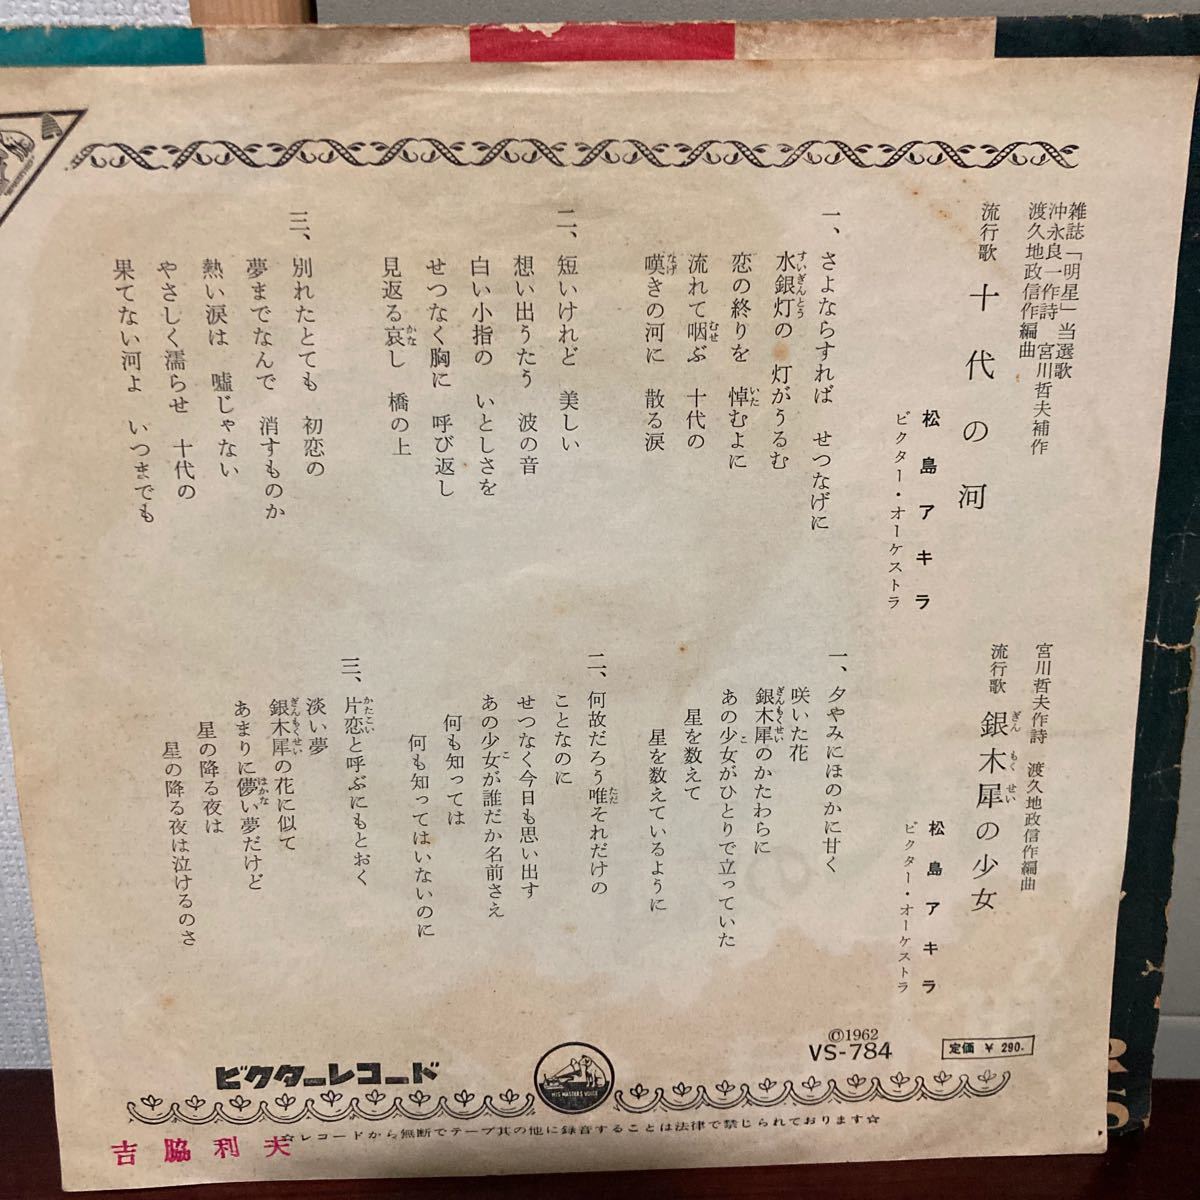 雑誌「明星」当選歌
沖永良一作詩 宮川哲夫補作
渡久地政信作編曲
流行歌 十代の河
松島アキラ
ビクター・オーケストラ
一、さよならすれば せつなげに
水銀灯の 灯がうるむ
すいぎんとう
恋の終りを 悼むよに
いた
流れて咽ぶ 十代の
むせ
嘆きの河に 散る涙
なげ
二、短いけれど 美しい
想い出うたう 波の音
白い小指の いとしさを
せつなく胸に 呼び返し
見返る哀し 橋の上
かな
三、別れたとても 初恋の
夢までなんで 消すものか
熱い涙は 嘘じゃない
やさしく濡らせ 十代の
果てない河よ いつまでも
宮川哲夫作詩 渡久地政信作編曲
流行歌 銀木犀の少女
ぎんもくせい
松島アキラ
ビクター・オーケストラ
一、夕やみにほのかに甘く
咲いた花
銀木犀のかたわらに
ぎんもくせい
あの少女がひとりで立っていた
こ
星を数えて
星を数えているように
二、何故だろう唯それだけの
ただ
ことなのに
せつなく今日も思い出す
あの少女が誰だか名前さえ
こ
何も知っては
何も知ってはいないのに
三、片恋と呼ぶにもとおく
かたこい
淡い夢
銀木犀の花に似て
ぎんもくせい
あまりに儚い夢だけど
はかな
星の降る夜は
星の降る夜は泣けるのさ
©1962
VS-784
定価 ¥ 290.
ビクターレコード
HIS MASTER'S VOICE
☆レコードから無断でテープ其の他に録音することは法律で禁じられております☆
吉脇利夫